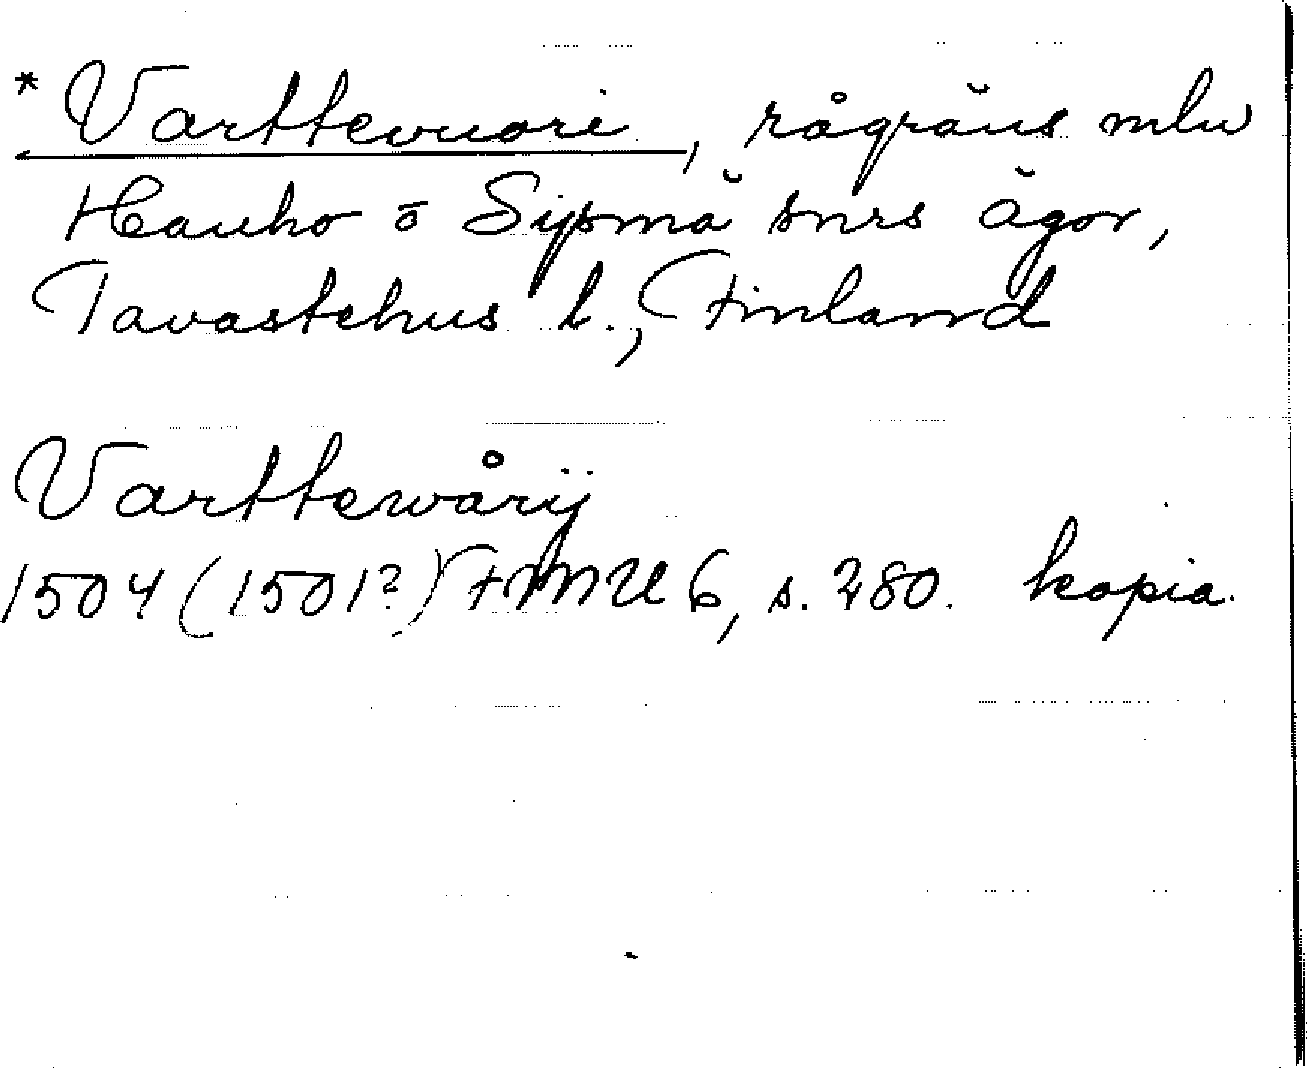 * Varttevuori, rågräns mlw
Hauho o Sysmä snrs ägor,
Tavastehus l., Finland
Varttewårÿ
1504 (1501?) FMU 6, s. 280. kopia.